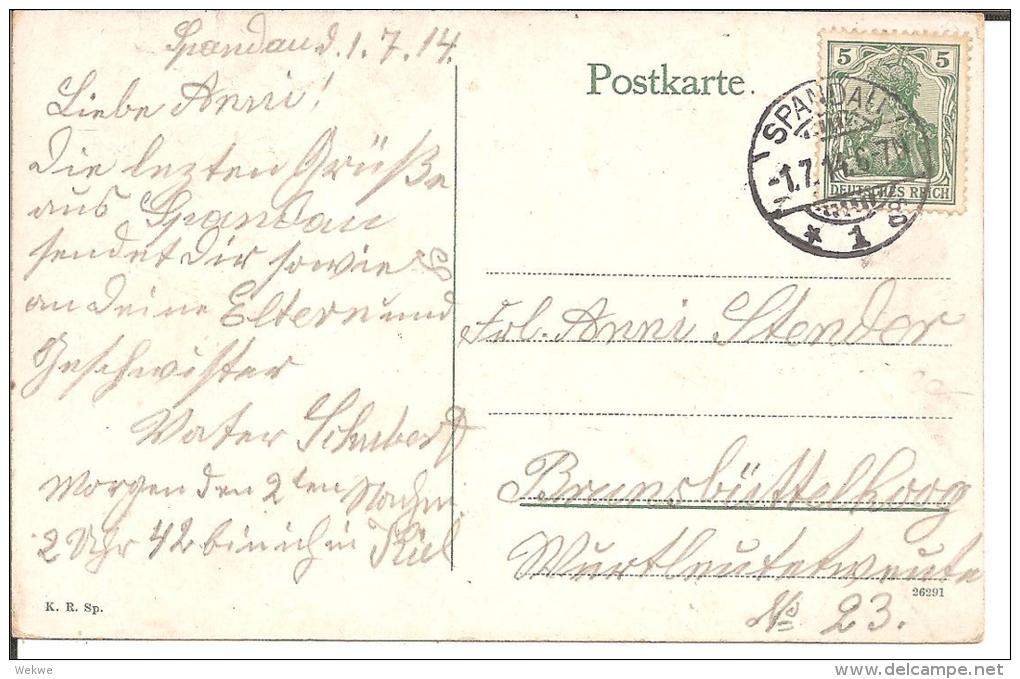 Spandau d. 1.7.14.
Liebe Anni!
Die lezten Grüße
aus Spandau
sendet Dir sowie
an deine Eltern und
Geschwister
Vater Schubert
Morgen den 2ten Nachm.
2 Uhr 42 bin ich in Kiel
K. R. Sp.
Postkarte.
5 5
DEUTSCHES REICH
SPANDAU
-1.7.14.6-7N
* 1
Frl. Anni Stender
Brunsbüttelkoog
Wurtleutetweute
26291
No 23.
Wekwe
delcampe.net